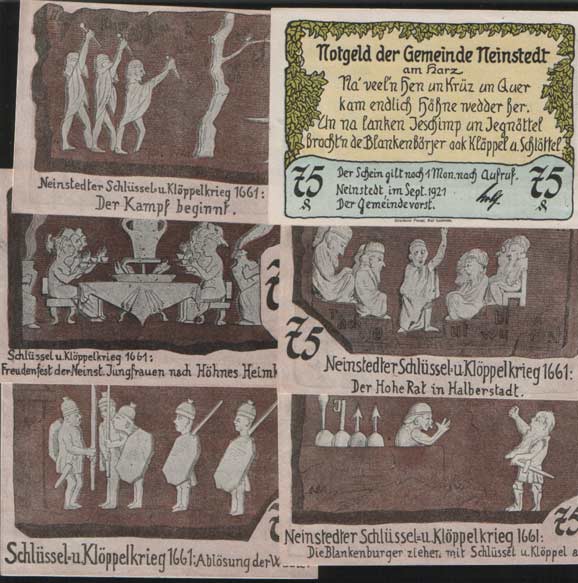 Neinstedter Schlüssel=u. Klöppelkrieg 1661:
Der Kampf beginnt.
Notgeld der Gemeinde Neinstedt
am Harz
Na' veel'n Hen un Krüz un Quer
kam endlich Höhne wedder her.
Un na lanken Jeschimp un Jegnöttel
brocht'n de Blankenbörjer ook Kläppel u. Schlöttel
75
Der Schein gilt noch 1 Mon. nach Aufruf.
Neinstedt im Sept. 1921
Der Gemeindevorst.
75
Schlüssel u. Klöppelkrieg 1661:
Freudenfest der Neinst. Jungfrauen nach Höhnes Heimk
75
Neinstedter Schlüssel=u. Klöppelkrieg 1661:
Der Hohe Rat in Halberstadt.
Schlüssel=u. Klöppelkrieg 1661: Ablösung der
Neinstedter Schlüssel=u. Klöppelkrieg 1661:
Die Blankenburger zieher, mit Schlüssel u. Klöppel a